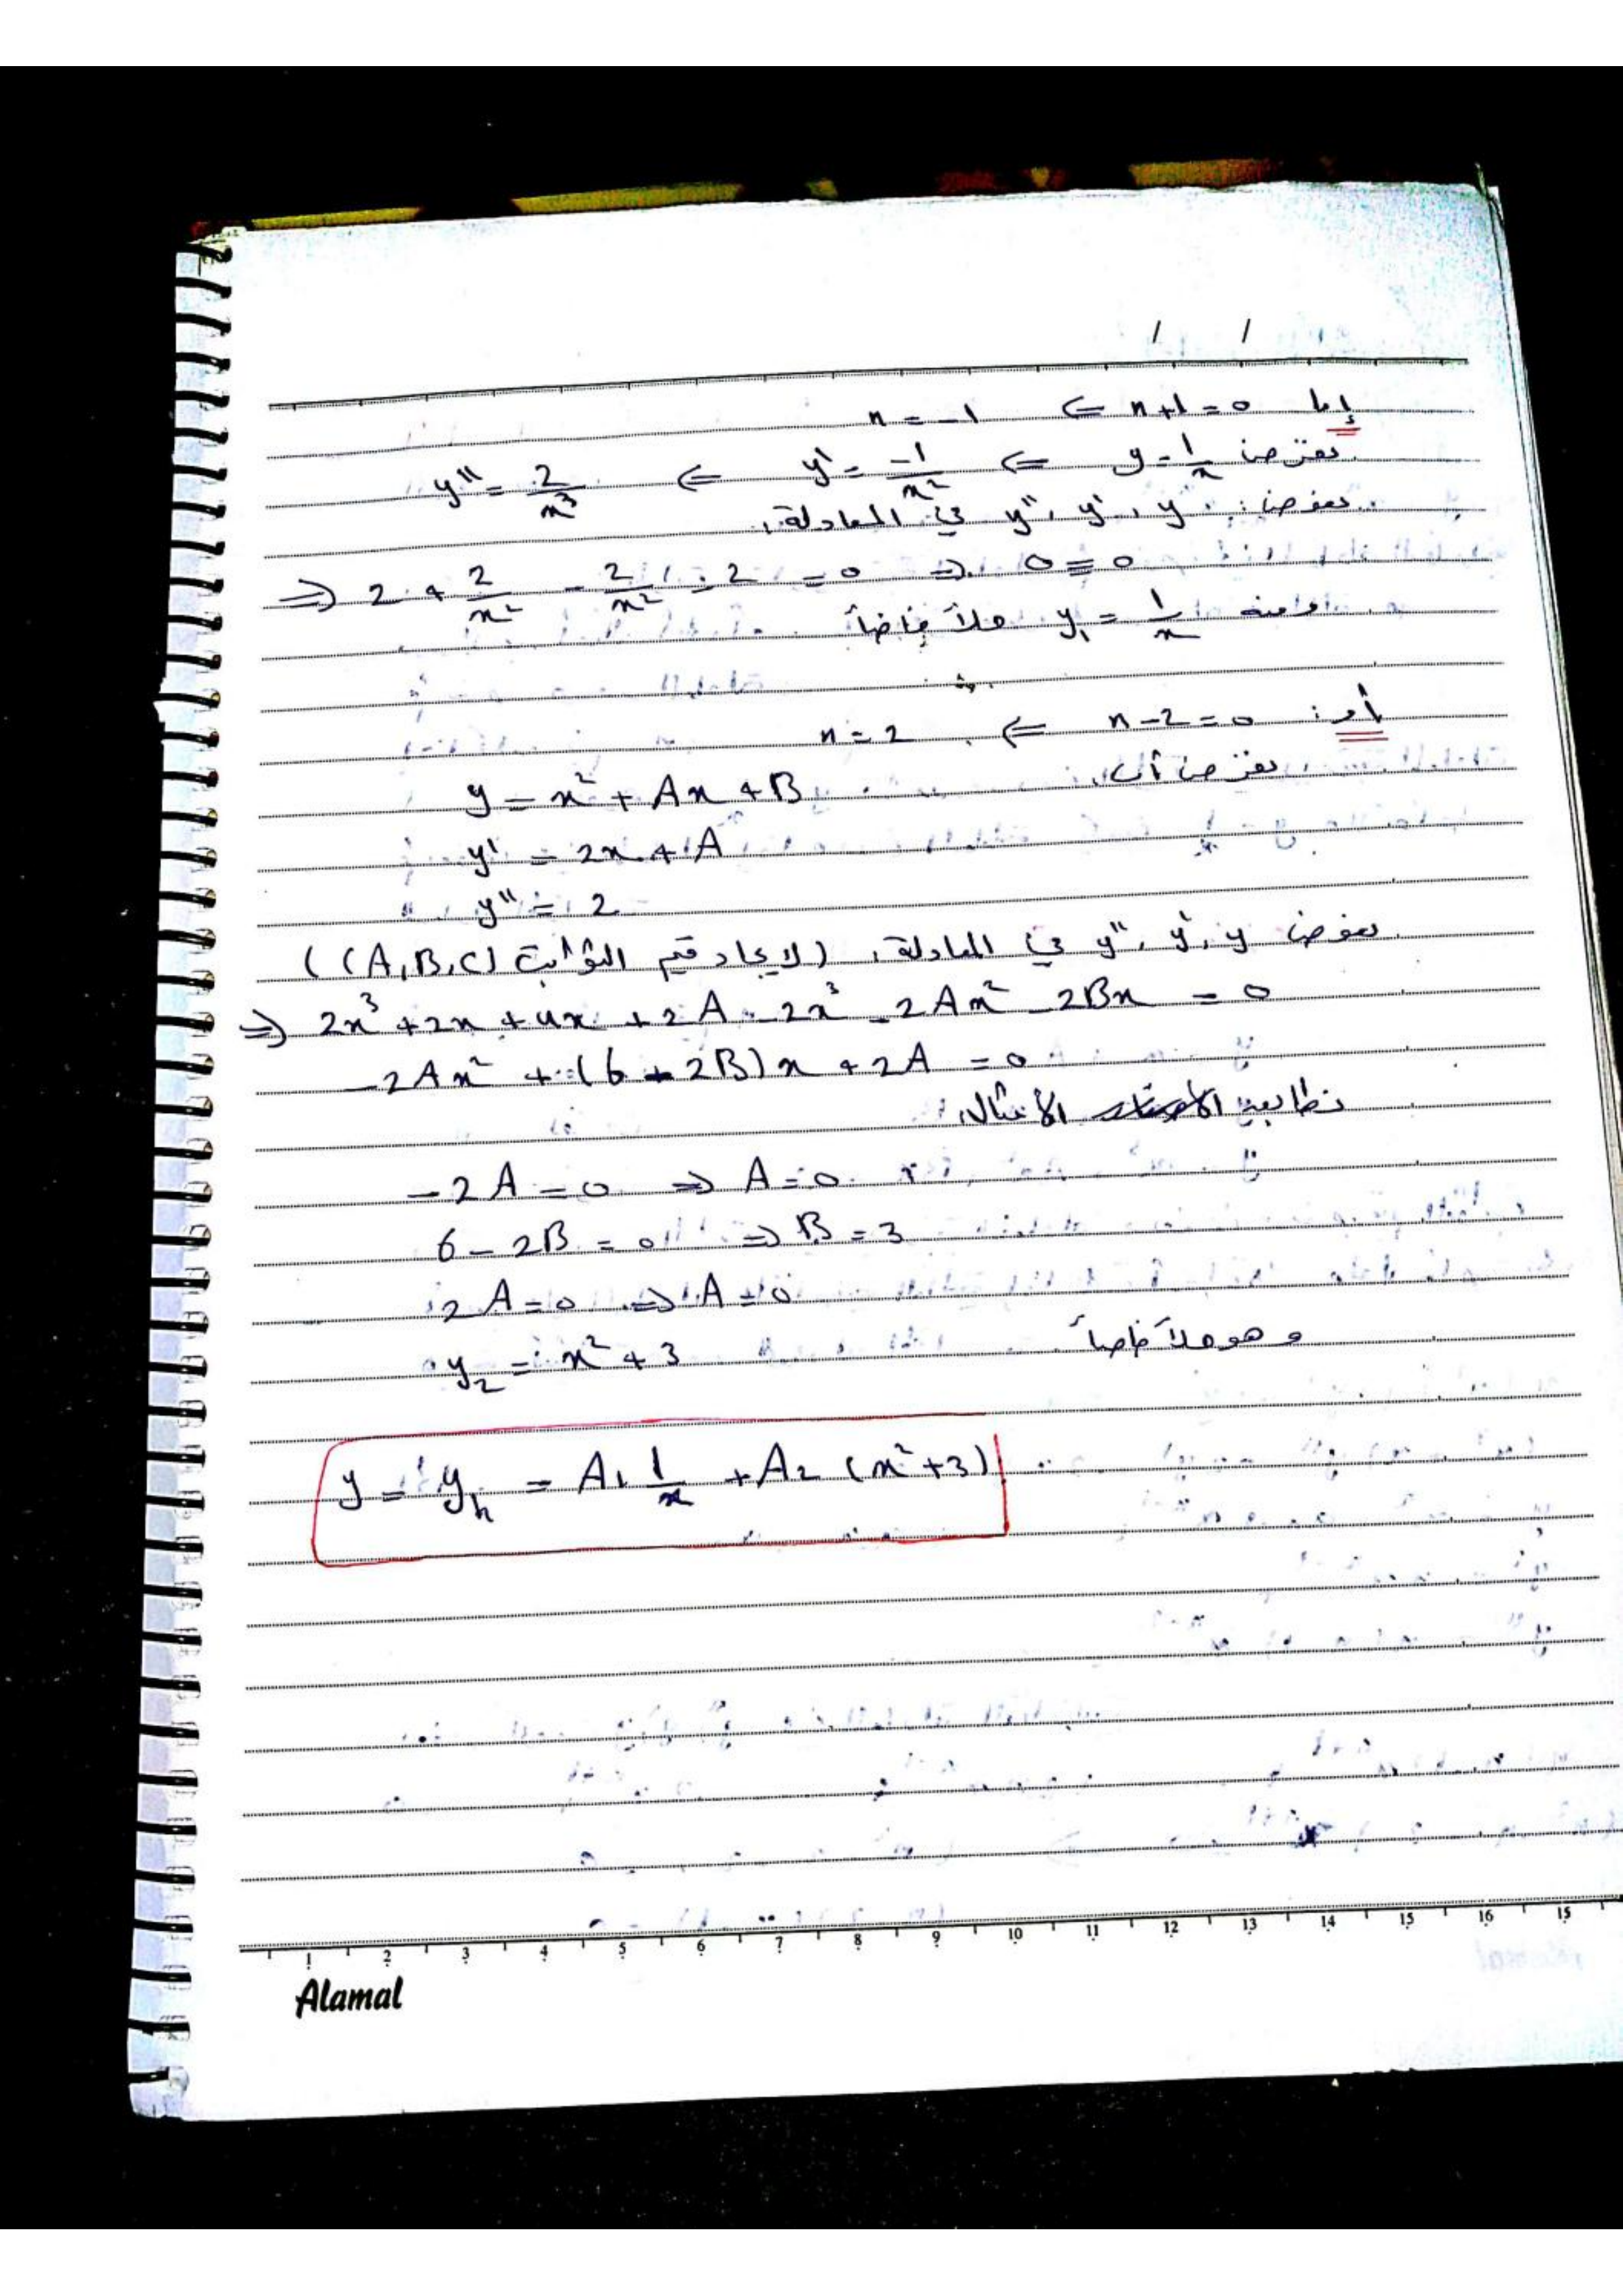 / /
إما n+1=0 ⇐ n=-1
نفرض y=1/x ⇐ y'=-1/x² ⇐ y''=2/x³
نعوض: y, y', y'' في المعادلة:
⇒ 2+2/x² - 2/x² - 2 = 0 ⇒ 0=0
ومنه y₁ = 1/x حلاً خاصاً
أو: n-2=0 ⇐ n=2
نفرض أن:
y = x² + Ax + B
y' = 2x + A
y'' = 2
نعوض y, y', y'' في المعادلة، (لايجاد قيم الثوابت (A,B,C))
⇒ 2x³+2x+4x+2A-2x³-2Ax²-2Bx = 0
-2Ax² + (6-2B)x + 2A = 0
نطابق الأمثال:
-2A=0 ⇒ A=0
6-2B=0 ⇒ B=3
2A=0 ⇒ A=0
وهو حلاً خاصاً y₂ = x²+3
y = y_h = A₁ 1/x + A₂ (x²+3)
1 2 3 4 5 6 7 8 9 10 11 12 13 14 15 16 15
Alamal